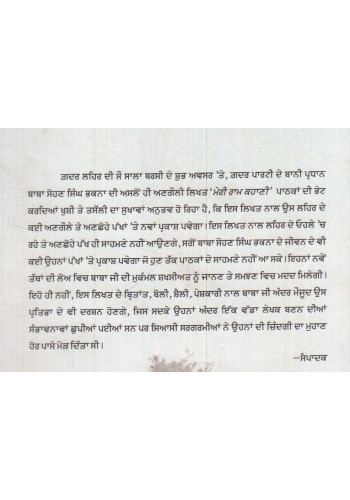 ਗ਼ਦਰ ਲਹਿਰ ਦੀ ਸੌ ਸਾਲਾ ਬਰਸੀ ਦੇ ਸ਼ੁਭ ਅਵਸਰ 'ਤੇ, ਗ਼ਦਰ ਪਾਰਟੀ ਦੇ ਬਾਨੀ ਪ੍ਰਧਾਨ
ਬਾਬਾ ਸੋਹਣ ਸਿੰਘ ਭਕਨਾ ਦੀ ਅਸਲੋਂ ਹੀ ਅਣਗੌਲੀ ਲਿਖਤ 'ਮੇਰੀ ਰਾਮ ਕਹਾਣੀ' ਪਾਠਕਾਂ ਦੀ ਭੇਟ
ਕਰਦਿਆਂ ਖੁਸ਼ੀ ਤੇ ਤਸੱਲੀ ਦਾ ਸੁਖਾਵਾਂ ਅਨੁਭਵ ਹੋ ਰਿਹਾ ਹੈ, ਕਿ ਇਸ ਲਿਖਤ ਨਾਲ ਉਸ ਲਹਿਰ ਦੇ
ਕਈ ਅਣਗੌਲੇ ਤੇ ਅਣਛੋਹੇ ਪੱਖਾਂ 'ਤੇ ਨਵਾਂ ਪ੍ਰਕਾਸ਼ ਪਵੇਗਾ। ਇਸ ਲਿਖਤ ਨਾਲ ਲਹਿਰ ਦੇ ਓਹਲੇ 'ਚ
ਰਹੇ ਤੇ ਅਣਛੋਹੇ ਪੱਖ ਹੀ ਸਾਹਮਣੇ ਨਹੀਂ ਆਉਣਗੇ, ਸਗੋਂ ਬਾਬਾ ਸੋਹਣ ਸਿੰਘ ਭਕਨਾ ਦੇ ਜੀਵਨ ਦੇ ਵੀ
ਕਈ ਉਹਨਾਂ ਪੱਖਾਂ 'ਤੇ ਪ੍ਰਕਾਸ਼ ਪਵੇਗਾ ਜੋ ਹੁਣ ਤੱਕ ਪਾਠਕਾਂ ਦੇ ਸਾਹਮਣੇ ਨਹੀਂ ਆ ਸਕੇ।ਇਹਨਾਂ ਨਵੇਂ
ਤੱਥਾਂ ਦੀ ਲੋਅ ਵਿਚ ਬਾਬਾ ਜੀ ਦੀ ਮੁਕੰਮਲ ਸ਼ਖਸੀਅਤ ਨੂੰ ਜਾਣਣ ਤੇ ਸਮਝਣ ਵਿਚ ਮਦਦ ਮਿਲੇਗੀ।
ਇਹੋ ਹੀ ਨਹੀਂ, ਇਸ ਲਿਖਤ ਦੇ ਬ੍ਰਿਤਾਂਤ, ਬੋਲੀ, ਸ਼ੈਲੀ, ਪੇਸ਼ਕਾਰੀ ਨਾਲ ਬਾਬਾ ਜੀ ਅੰਦਰ ਮੌਜੂਦ ਉਸ
ਪ੍ਰਤਿਭਾ ਦੇ ਵੀ ਦਰਸ਼ਨ ਹੋਣਗੇ, ਜਿਸ ਸਦਕੇ ਉਹਨਾਂ ਅੰਦਰ ਇੱਕ ਵੱਡਾ ਲੇਖਕ ਬਣਨ ਦੀਆਂ
ਸੰਭਾਵਨਾਵਾਂ ਛੁਪੀਆਂ ਪਈਆਂ ਸਨ ਪਰ ਸਿਆਸੀ ਸਰਗਰਮੀਆਂ ਨੇ ਉਹਨਾਂ ਦੀ ਜ਼ਿੰਦਗੀ ਦਾ ਮੁਹਾਣ
ਹੋਰ ਪਾਸੇ ਮੋੜ ਦਿੱਤਾ ਸੀ।
–ਸੰਪਾਦਕ